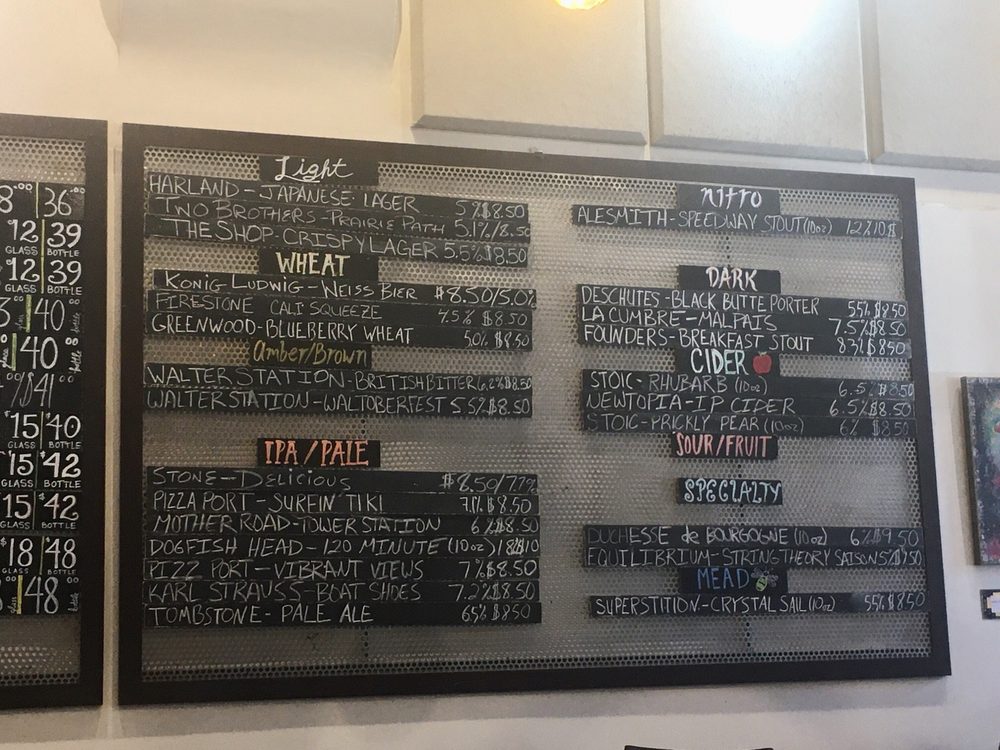 8.00 36.00
12 39
GLASS BOTTLE
12 39
GLASS BOTTLE
3 40
40
/$41
$15 $40
GLASS BOTTLE
$15 $42
GLASS BOTTLE
15 $42
GLASS BOTTLE
$18 $48
GLASS BOTTLE
48
Light
HARLAND - JAPANESE LAGER 5% $8.50
TWO BROTHERS - PRAIRIE PATH 5.1% $8.50
THE SHOP - CRISPY LAGER 5.5% $8.50
WHEAT
KONIG LUDWIG - WEISS BIER $8.50/5.0%
FIRESTONE CALI SQUEEZE 4.5% $8.50
GREENWOOD - BLUEBERRY WHEAT 5.0% $8.50
Amber/Brown
WALTER STATION - BRITISH BITTER 6.2% $8.50
WALTER STATION - WALTOBERFEST 5.5% $8.50
IPA / PALE
STONE - DELICIOUS $8.50/7.7%
PIZZA PORT - SURFIN' TIKI 7.1% $8.50
MOTHER ROAD - TOWER STATION 6% $8.50
DOGFISH HEAD - 120 MINUTE (10oz) 18% $10
PIZZ PORT - VIBRANT VIEWS 7% $8.50
KARL STRAUSS - BOAT SHOES 7.2% $8.50
TOMBSTONE - PALE ALE 6.5% $8.50
NITRO
ALESMITH - SPEEDWAY STOUT (10oz) 12% 10$
DARK
DESCHUTES - BLACK BUTTE PORTER 5.5% $8.50
LA CUMBRE - MALPAIS 7.5% $8.50
FOUNDERS - BREAKFAST STOUT 8.3% $8.50
CIDER
STOIC - RHUBARB (10oz) 6.5% $8.50
NEWTOPIA - I.P. CIDER 6.5% $8.50
STOIC - PRICKLY PEAR (10oz) 6% $8.50
SOUR/FRUIT
SPECIALTY
DUCHESSE de BOURGOGNE (10oz) 6% $9.50
EQUILIBRIUM - STRING THEORY SAISON 5%
MEAD
SUPERSTITION - CRYSTAL SAIL (10oz) 5.5% $8.50